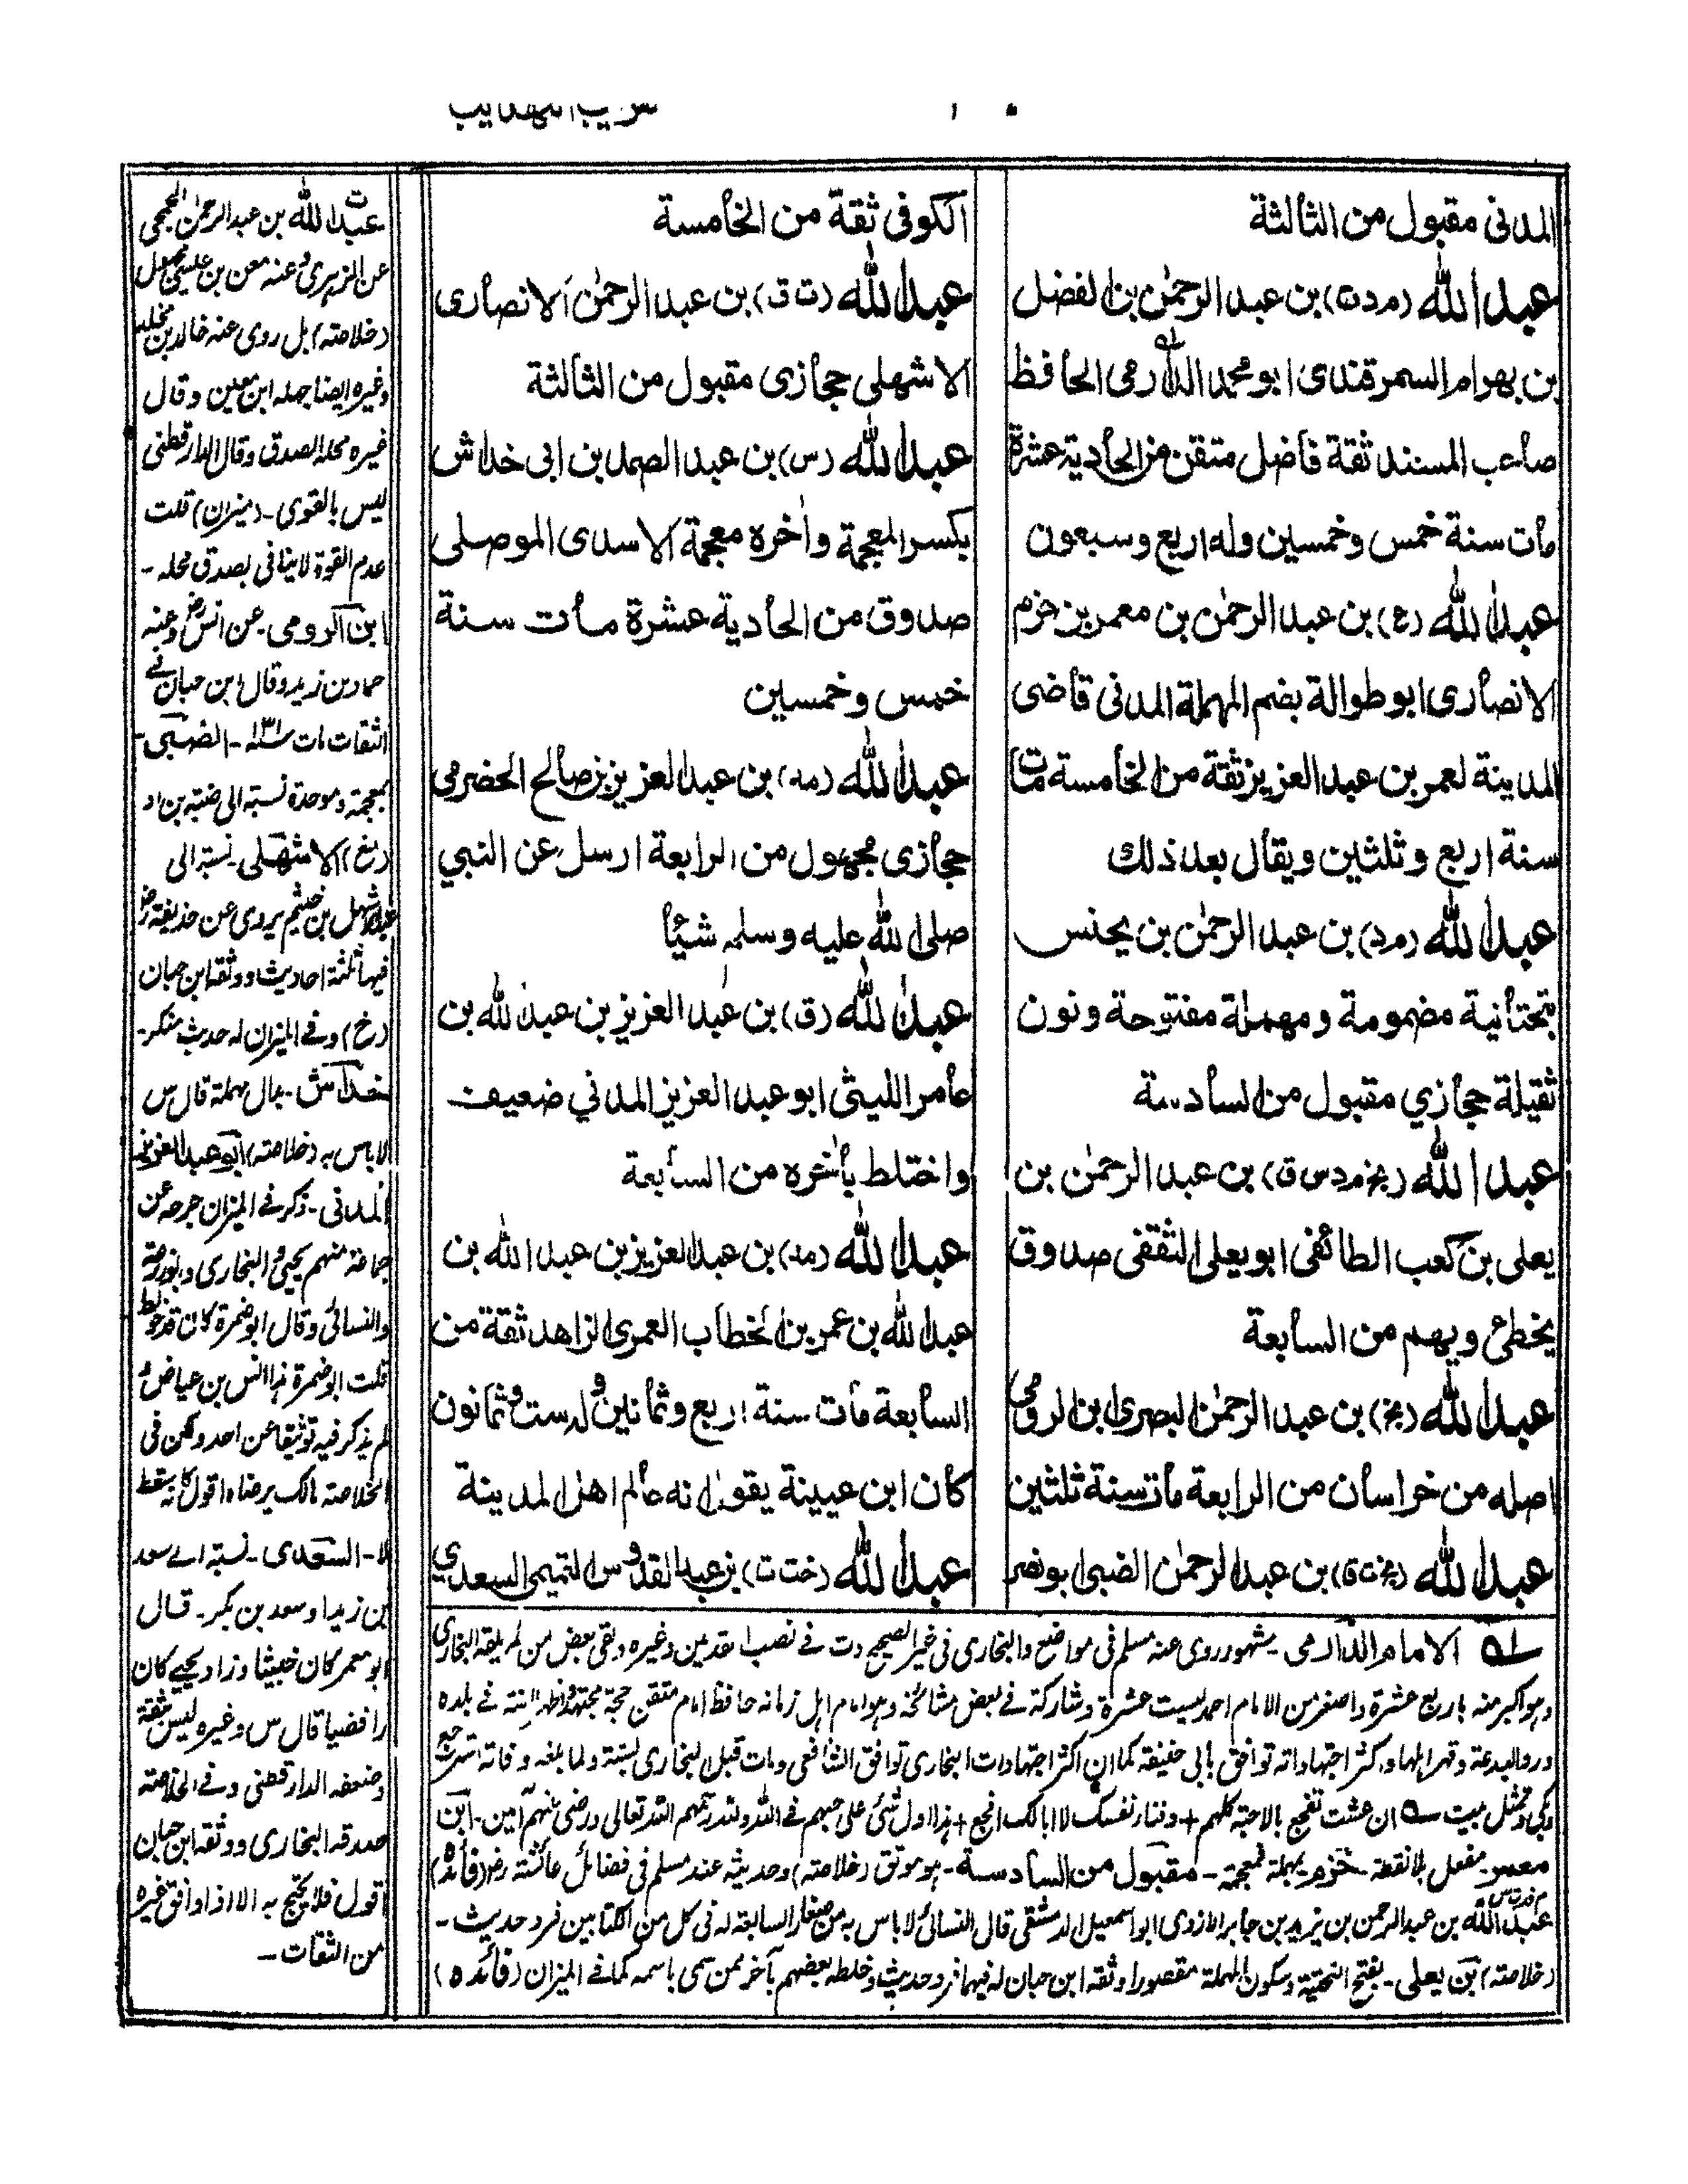 المدنى مقبول من الثالثة
عبد الله (م د ت) بن عبد الرحمٰن بن الفضل
بن بهرام السمرقندى ابو محمد الدارمى الحافظ
صاحب المسند ثقة فاضل متقن من الحادية عشرة
مات سنة خمس وخمسين وله اربع وسبعون
عبد الله (ع) بن عبد الرحمٰن بن معمر بن حزم
الانصارى ابو طوالة بضم المهملة المدنى قاضى
المدينة لعمر بن عبد العزيز ثقة من الخامسة مات
سنة اربع وثلثين ويقال بعد ذلك
عبد الله (م د) بن عبد الرحمٰن بن يحنس
بتحتانية مضمومة ومهملة مفتوحة ونون
ثقيلة حجازي مقبول من السادسة
عبد الله (بخ م د س ق) بن عبد الرحمٰن بن
يعلى بن كعب الطائفى ابو يعلى الثقفى صدوق
يخطئ ويهم من السابعة
عبد الله (بخ) بن عبد الرحمٰن البصرى ابن الرومي
اصله من خراسان من الرابعة مات سنة ثلثين
عبد الله (بخ ت ق) بن عبد الرحمٰن الضبى ابو نصر
الكوفى ثقة من الخامسة
عبد الله (ت ق) بن عبد الرحمٰن الانصارى
الاشهلى حجازى مقبول من الثالثة
عبد الله (س) بن عبد الصمد بن ابى خداش
بكسر المعجمة واٰخره معجمة الاسدى الموصلى
صدوق من الحادية عشرة مات سنة
خمس وخمسين
عبد الله (مد) بن عبد العزيز بن صالح الحضرمى
حجازى مجهول من الرابعة ارسل عن النبي
صلى الله عليه وسلم شيئاً
عبد الله (ق) بن عبد العزيز بن عبد الله بن
عامر الليثى ابو عبد العزيز المدني ضعيف
واختلط باٰخره من السابعة
عبد الله (مد) بن عبد العزيز بن عبد الله بن
عبد الله بن عمر بن الخطاب العمرى الزاهد ثقة من
السابعة مات سنة اربع وثمانين وله ست وثمانون
كان ابن عيينة يقول انه عالم اهل المدينة
عبد الله (خت ت) بن عبد القدوس التميمى السعدي
الامام الدارمى - مشهور روى عنه مسلم فى مواضع والبخارى فى غير الصحيح و ت فے نصب نقدين وغيره وبقى بعض من لم يلقه البخارى
وهو اكبر منه باربع عشرة واصغر من الامام احمد بست عشرة وشاركه فے بعض مشائخه وهو امام اهل زمانه حافظ امام متقن حجة مجتهد السنة فے بلده
اجتهاداته توافق بابى حنيفة كما ان اكثر اجتهادات البخارى توافق الشافعى ومات قبل البخارى بسنة ولما بلغه وفاته استرجع
وبكى وتمثل ببيت ان عشت تفجع بالاحبة كلهم + وفناء نفسك لا ابالك افجع + آمين - ابن
معمر مفعل بلا نقطة - حزم بمهملة فمعجمة - مقبول من السادسة - هو موثق (خلاصته) وحديثه عند مسلم فى فضائل عائشة رض (فائده)
عبد الله بن عبد الرحمن بن يزيد بن جابر الازدى ابو اسمعيل الدمشقى قال النسائى لا باس به من صغار السابعة له فى كل من الكتابين فرد حديث -
(خلاصته) بن يعلى - بفتح التحتية وسكون المهملة مقصورا وثقه ابن حبان له فيها فرد حديث وخلطه بعضهم بآخر ممن سمى باسمه كما فے الميزان (فائده)
عبد الله بن عبد الرحمن الجمحى
عن الزهرى وعنه معن بن عيسى
(خلاصته) بل روى عنه خالد بن مخلد
وغيره ايضا جهله ابن معين وقال
غيره محله الصدق وقال الدارقطنى
ليس بالقوى - (ميزان) قلت
عدم القوة لا ينافى بصدق محله -
ابن الرومى - عن انس رض وعنه
حماد بن زيد وقال ابن حبان فے
الثقات مات سنة ١٣١ - الضبى -
بمعجمة وموحدة نسبة الى ضبة بن اد
(مغ) الاشهلى - نسبة الى
عبد الاشهل بن خيثم يروى عن حذيفة رض
فيها ثلثة احاديث ووثقه ابن حبان
(خ) وفے الميزان له حديث منكر -
خداش - بدال مهملة قال س
لا باس به (خلاصته) ابو عبد العزيز
المدنى - ذكر فے الميزان جرحه عن
جماعة منهم يحيى والبخارى وابو زرعة
والنسائى وقال ابو ضمرة كان قد خولط
قلت ابو ضمرة هذا انس بن عياض و
لم يذكر فيه توثيقا عن احد ولكن فى
الخلاصته مالك يرضاه اقول كانه سقط
لا - السعدى - نسبة الے سعد
بن زيد او سعد بن بكر - قال
ابو معمر كان خبيثا وزاد يحيے كان
رافضيا قال س وغيره ليس بثقة
وضعفه الدارقطنى وفے الخلاصته
صدقه البخارى ووثقه ابن حبان
اقول فلا يحتج به الا اذا وافق غيره
من الثقات -